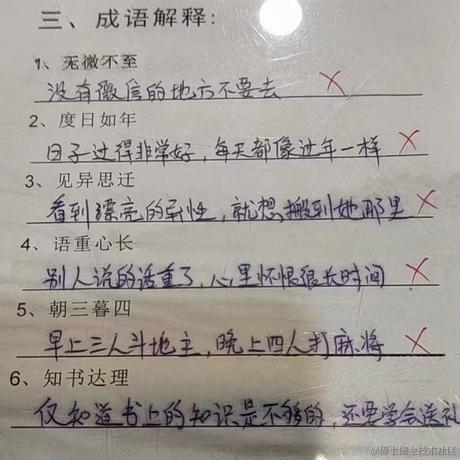 三、成语解释:
1、无微不至
没有微信的地方不要去
2、度日如年
日子过得非常好，每天都像过年一样
3、见异思迁
看到漂亮的异性，就想搬到她那里
4、语重心长
别人说的话重了，心里怀恨很长时间
5、朝三暮四
早上三人斗地主，晚上四人打麻将
6、知书达理
仅知道书上的知识是不够的，还要学会送礼
@稀土掘金技术社区